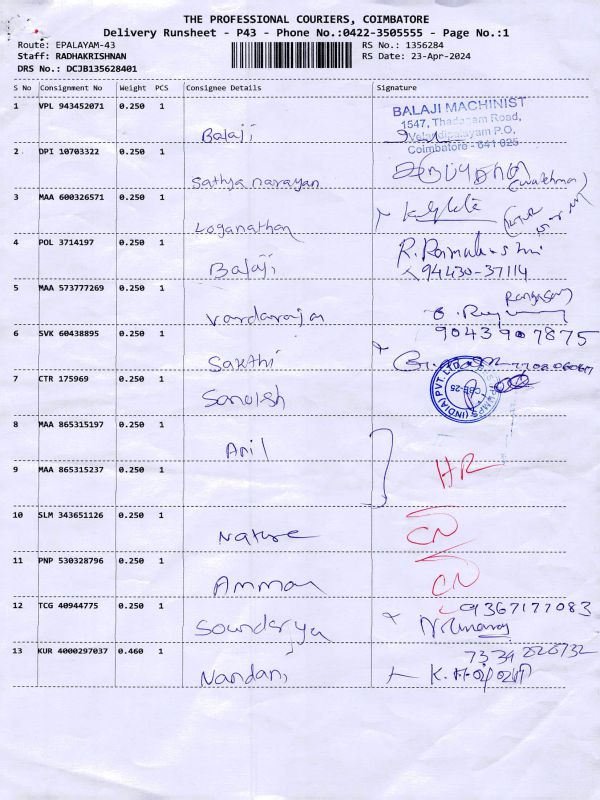 THE PROFESSIONAL COURIERS, COIMBATORE
Delivery Runsheet - P43 - Phone No.:0422-3505555 - Page No.:1
Route: EPALAYAM-43
RS No.: 1356284
Staff: RADHAKRISHNAN
RS Date: 23-Apr-2024
DRS No.: DCJB135628401
S No Consignment No Weight PCS Consignee Details Signature
1 VPL 943452071 0.250 1 Balaji
BALAJI MACHINIST
1547, Thadagam Road,
Velandipalayam P.O,
Coimbatore - 641 025
2 DPI 10703322 0.250 1 Sathya narayan
3 MAA 600326571 0.250 1 Loganathan
4 POL 3714197 0.250 1 Balaji
94430-37114
5 MAA 573777269 0.250 1 Vardaraja
Rangasamy
6 SVK 60438895 0.250 1 Sakthi
9043907875
7 CTR 175969 0.250 1
(INDIA) PVT. LTD.
CBE-25
8 MAA 865315197 0.250 1 Anil
9 MAA 865315237 0.250 1 HR
10 SLM 343651126 0.250 1 Nature CN
11 PNP 530328796 0.250 1 Amman CN
12 TCG 40944775 0.250 1 Soundarya 9367177083
13 KUR 4000297037 0.460 1 Nandani